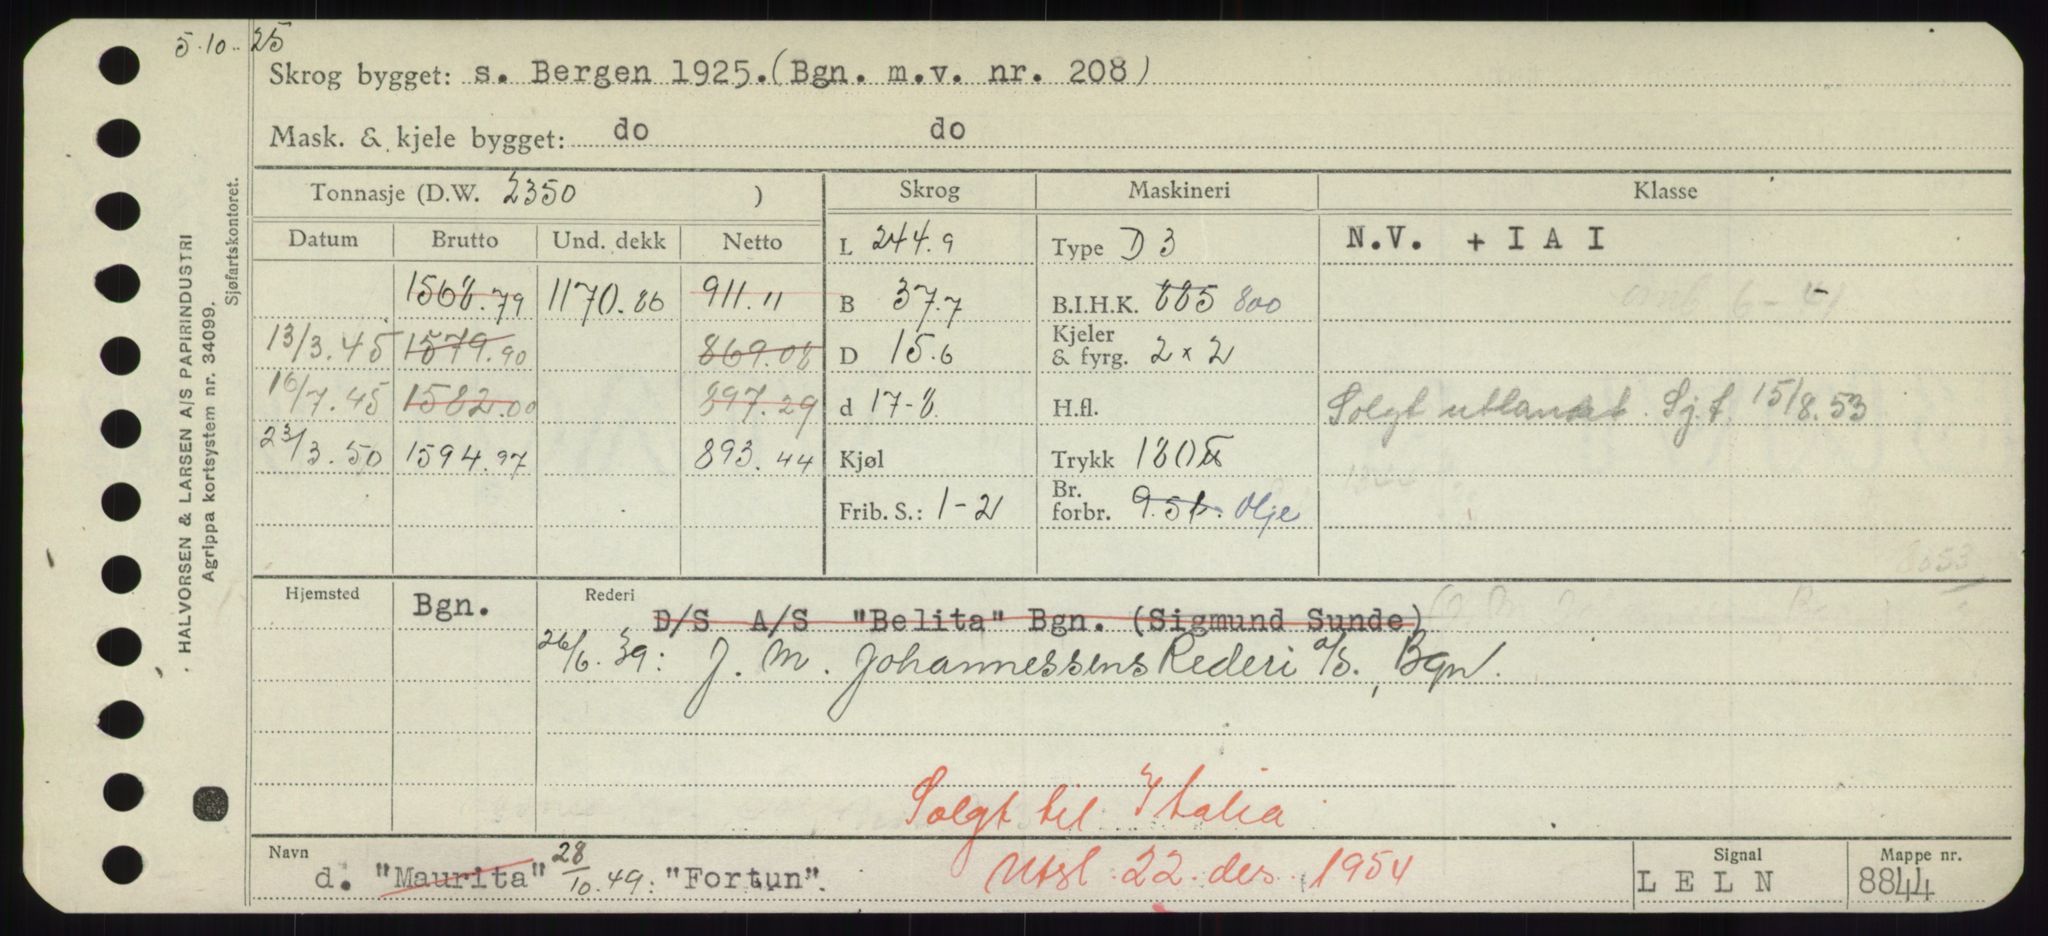 5.10.25
Skrog bygget: s. Bergen 1925. (Bgn. m.v. nr. 208)
Mask. & kjele bygget: do do
Tonnasje (D.W. 2350 ) Skrog Maskineri Klasse
Datum Brutto Und. dekk Netto L 244.9 Type D 3 N.V. + I A I
1568.79 1170.86 911.11 B 37.7 B.I.H.K. 885 800
13/3.45 1579.90 869.08 D 15.6 Kjeler & fyrg. 2 x 2
16/7.45 1582.00 897.29 d 17-8 H.fl. Solgt utlandet. Sj.f. 15/8.53
23/3.50 1594.97 893.44 Kjøl Trykk 180
Frib. S.: 1-2 Br. forbr. 9.5t. Olje
Hjemsted Bgn. Rederi D/S A/S "Belita" Bgn. (Sigmund Sunde)
26/6.39: J. M. Johannessens Rederi a/s., Bgn.
Solgt til Italia
Utsl. 22. des. 1954
Navn d. "Maurita" 28/10.49: "Fortun". Signal LELN Mappe nr. 8844
HALVORSEN & LARSEN A/S PAPIRINDUSTRI
Agrippa kortsystem nr. 34099.
Sjøfartskontoret.